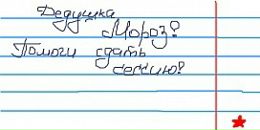 Дедушка
Мороз?
Помоги сдать
сессию?